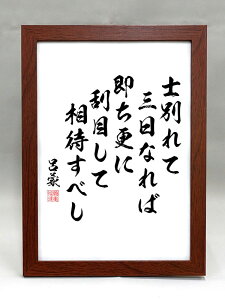 士別れて
三日なれば
即ち更に
刮目して
相待すべし
呂蒙